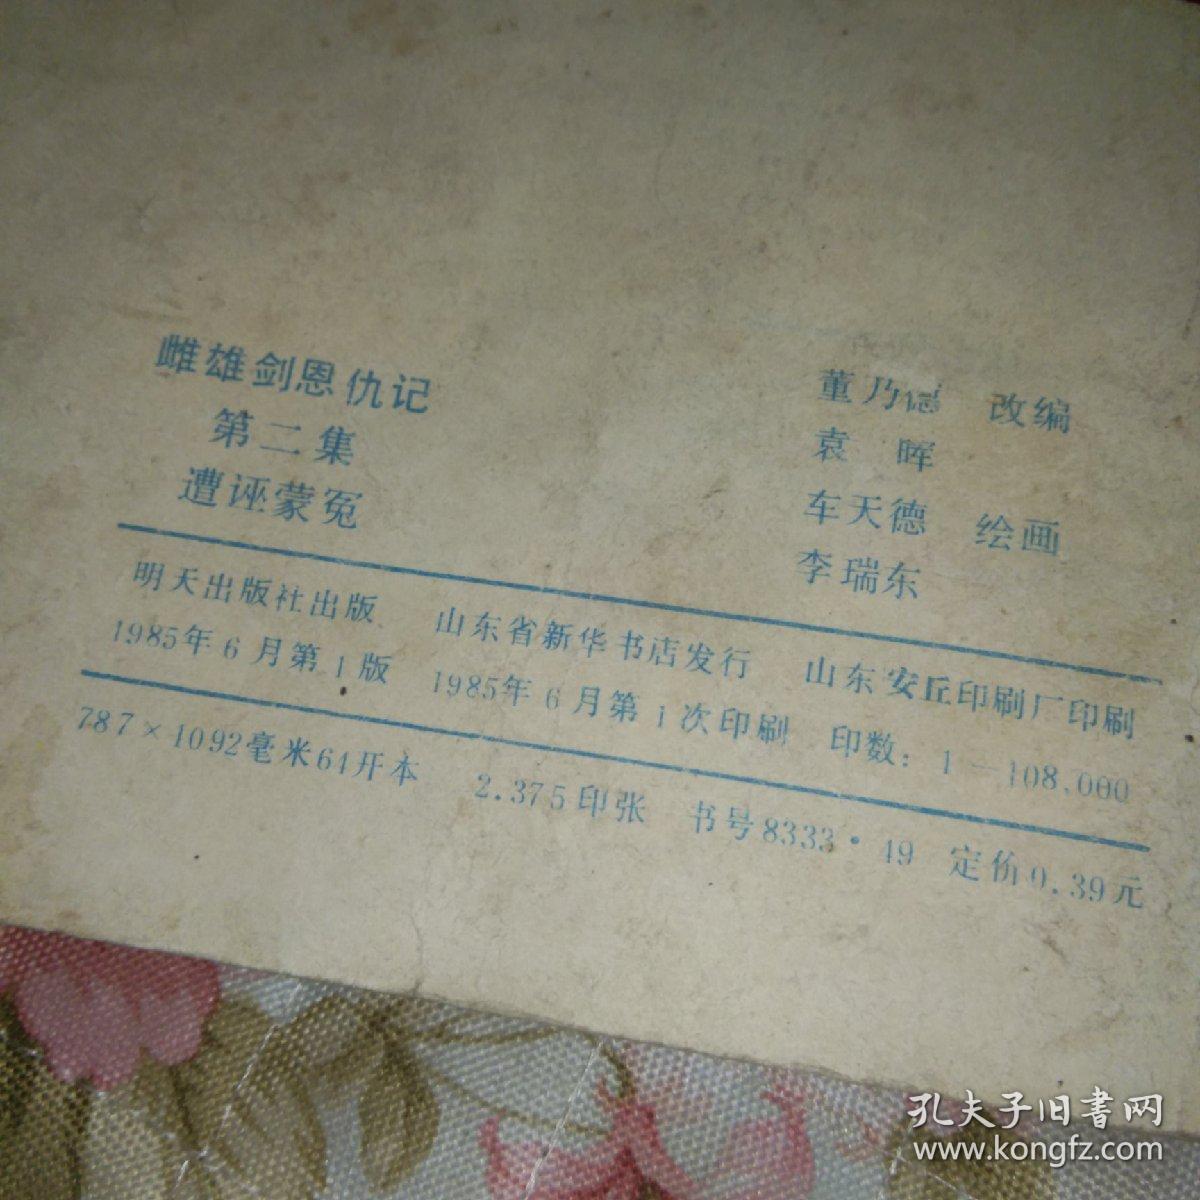 雌雄剑恩仇记
第二集
遭诬蒙冤
董乃德 改编
袁晖
车天德 绘画
李瑞东
明天出版社出版 山东省新华书店发行 山东安丘印刷厂印刷
1985年6月第1版 1985年6月第1次印刷 印数：1—108,000
787×1092毫米64开本 2.375印张 书号8333·49 定价0.39元
孔夫子旧書网
www.kongfz.com